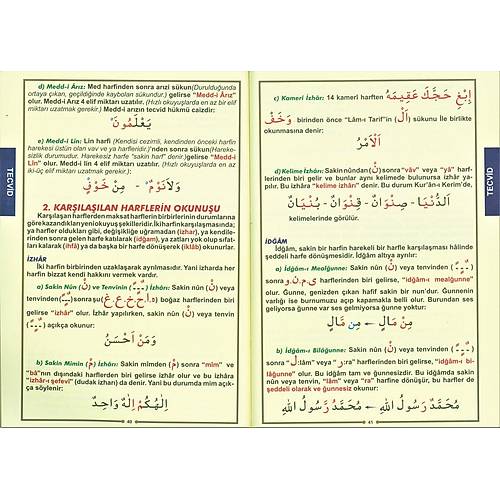 d) Medd-i Ârız: Med harfinden sonra arızi sükun(Durulduğunda
ortaya çıkan, geçildiğinde kaybolan sükundur.) gelirse "Medd-i Ârız"
olur. Medd-i Arız 4 elif miktarı uzatılır. (Hızlı okuyuşlarda en az bir elif
miktarı uzatmak gerekir.) Medd-i arızın tecvid hükmü caizdir:
يَعْلَمُونَ
e) Medd-i Lin: Lin harfi (Kendisi cezimli, kendinden önceki harfin
harekesi üstün olan vav ve ya harfleridir.)'nden sonra sükun(Hareke-
sizlik durumudur. Harekesiz harfe "sakin harf" denir.)gelirse "Medd-i
Lin" olur. Medd-i lin 4 elif miktarı uzatılır. (Hızlı okuyuşlarda en az
iki-üç elif miktarı uzatmak gerekir.):
وَلَا نَوْمٌ - مِنْ خَوْفٍ
2. KARŞILAŞILAN HARFLERİN OKUNUŞU
Karşılaşan harflerden maksat harflerin birbirlerinin durumlarına
göre kazandıkları yeni okuyuş özellikleridir. İki harfin karşılaşmasında;
ya harfler oldukları gibi, değişikliğe uğramadan (izhar), ya kendile-
rinden sonra gelen harfe katılarak (idğam), ya zatları yok olup sıfat-
ları kalarak (ihfâ) ya da başka bir harfe dönüşerek (iklâb) okunurlar.
İZHÂR
İki harfin birbirinden uzaklaşarak ayrılmasıdır. Yani izharda her
harfin bizzat kendi hakkını vermektir.
a) Sakin Nûn (نْ) ve Tenvinin İzhârı: Sakin nûn (نْ) veya
tenvinden sonra şu (ا,ح,خ,ع,غ,ه) boğaz harflerinden biri
gelirse "izhâr" olur. İzhâr yapılırken, sakin nûn (نْ) veya tenvin
açıkça okunur:
وَمَنْ اَحْسَنُ
b) Sakin Mimin (مْ) İzhârı: Sakin mimden (مْ) sonra "mîm" ve
"bâ"nın dışındaki harflerden biri gelirse izhâr olur ve bu izhâra
"izhâr-ı şefevî" (dudak izharı) da denir. Yani bu durumda mim açık-
ça söylenir:
اِلٰهُكُمْ اِلٰهٌ وَاحِدٌ
40
TECVİD
c) Kamerî İzhâr: 14 kamerî harften اِبْغِ حَجَّكَ عَقِيمَهُ
وَخَفْ birinden önce "Lâm-ı Tarif"in (اَلْ) sükunu ile birlikte
okunmasına denir:
اَلْاَمْرُ
d) Kelime İzhârı: Sakin nûndan (نْ) sonra "vâv" veya "yâ" harf-
lerinden biri gelir ve bunlar aynı kelimede bulunursa izhâr ya-
pılır. Bu izhâra "kelime izhârı" denir. Bu durum Kur'ân-ı Kerim'de,
اَلدُّنْيَا - صِنْوَانٌ - قِنْوَانٌ - بُنْيَانٌ
kelimelerinde görülür.
İDĞÂM
İdğâm, sakin bir harfin harekeli bir harfle karşılaşması hâlinde
şeddeli harfe dönüşmesidir. İdğâm altıya ayrılır:
a) İdğâm-ı Mealğunne: Sakin nûn (نْ) veya tenvinden
sonra ي,م,ن,و harflerinden biri gelirse, "idğâm-ı mealğunne"
olur. Ğunne, genizden çıkan hafif sakin bir "nûn" dur. Ğunnenin
varlığı ise burnumuzu açıp kapamakla belli olur. Burundan ses
geliyorsa ğunne var ses gelmiyorsa ğunne yoktur:
مِنْ مَالٍ ← مِن مَّالٍ
b) İdğâm-ı Bilâğunne: Sakin nûn (نْ) veya tenvinden
sonra ل:"lâm" veya ر:"ra" harflerinden biri gelirse, "idğâm-ı bi-
lâğunne" olur. Bu idğâm tam ve ğunnesizdir. Bu idğâmda sakin
nûn veya tenvin, "lâm" veya "ra" harfine dönüşür, bu harfler de
şeddeli olarak ve ğunnesiz okunur:
مُحَمَّدٌ رَسُولُ اللهِ ← مُحَمَّدُ رَّسُولُ اللهِ
41
TECVİD